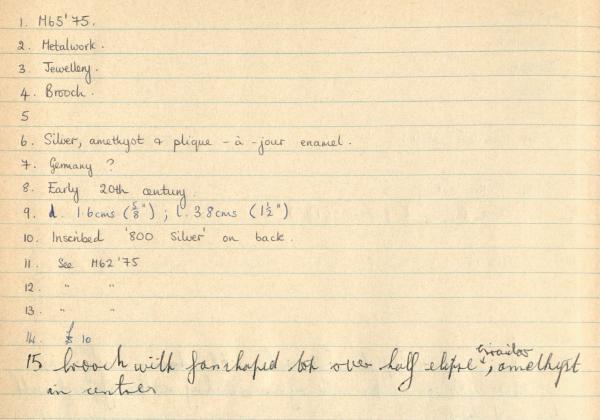 1. M65'75.
2. Metalwork.
3. Jewellery.
4. Brooch.
5
6. Silver, amethyst & plique-à-jour enamel.
7. Germany ?
8. Early 20th century.
9. d. 1.6cms (5/8"); l. 3.8cms (1½")
10. Inscribed '800 Silver' on back.
11. See M62'75
12. " "
13. " "
14. £ 10
15 brooch with fanshaped top over half elipse, amethyst
in center